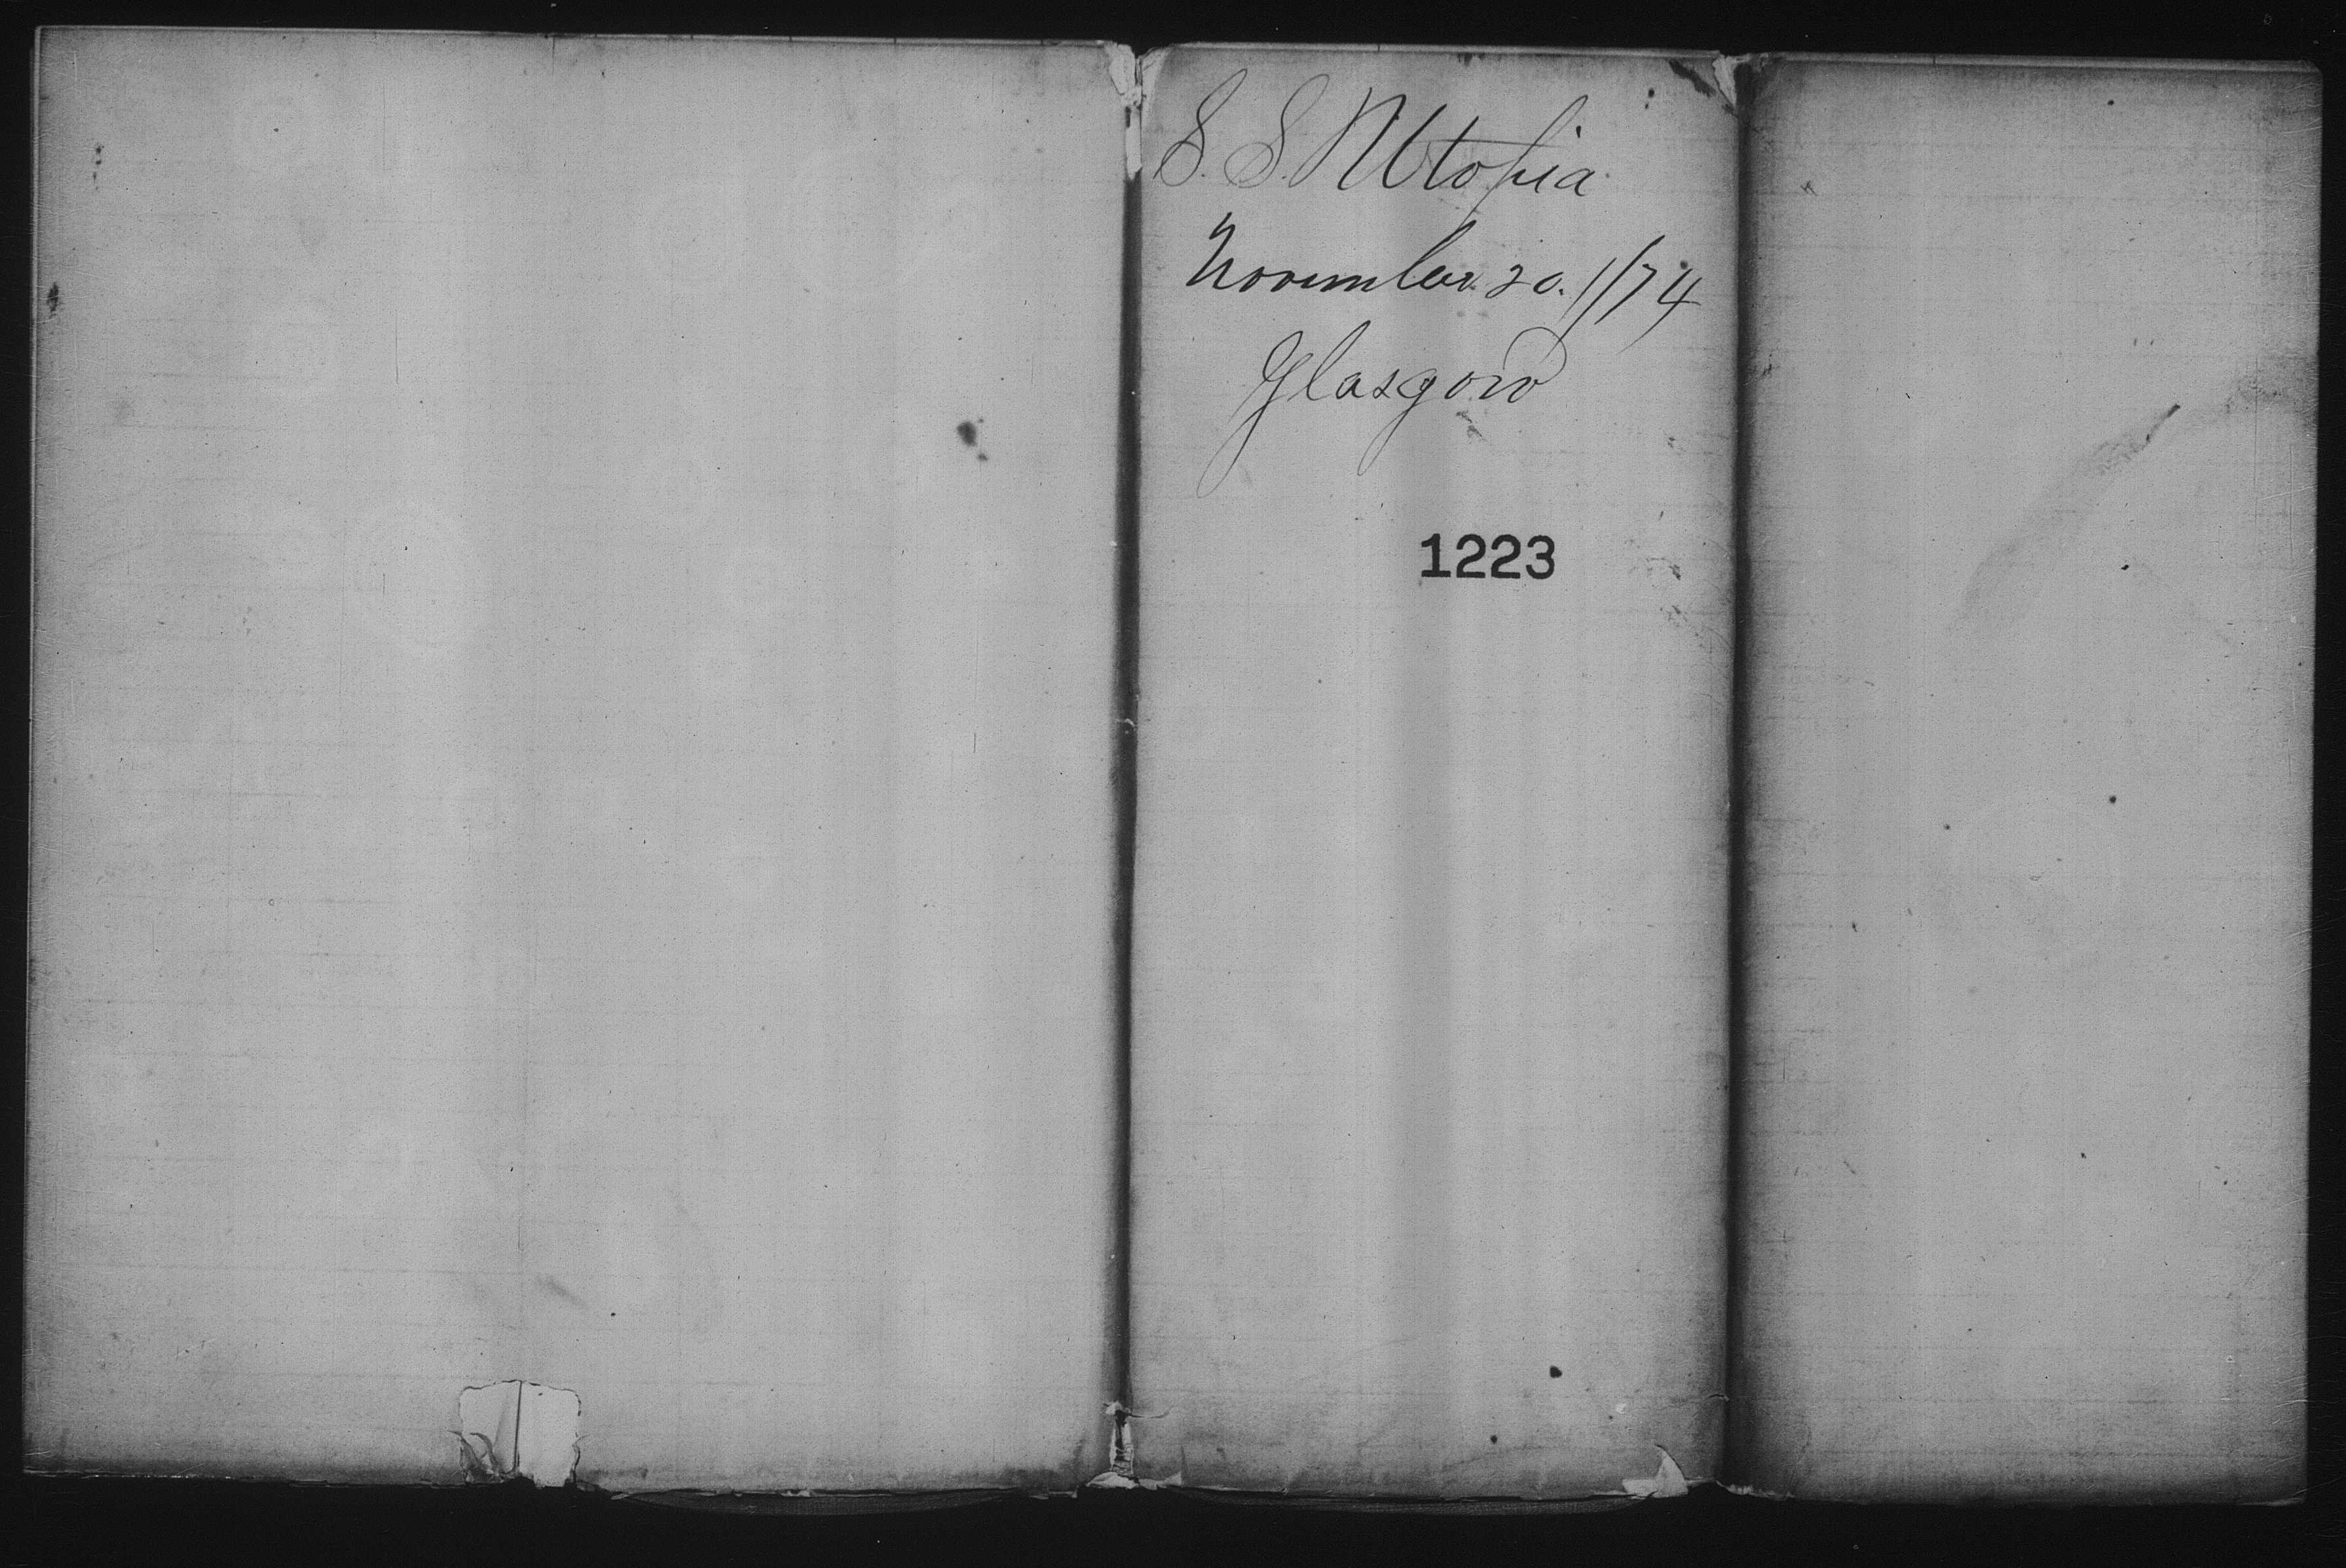 S. S. Utopia
November 20. //74
Glasgow
1223